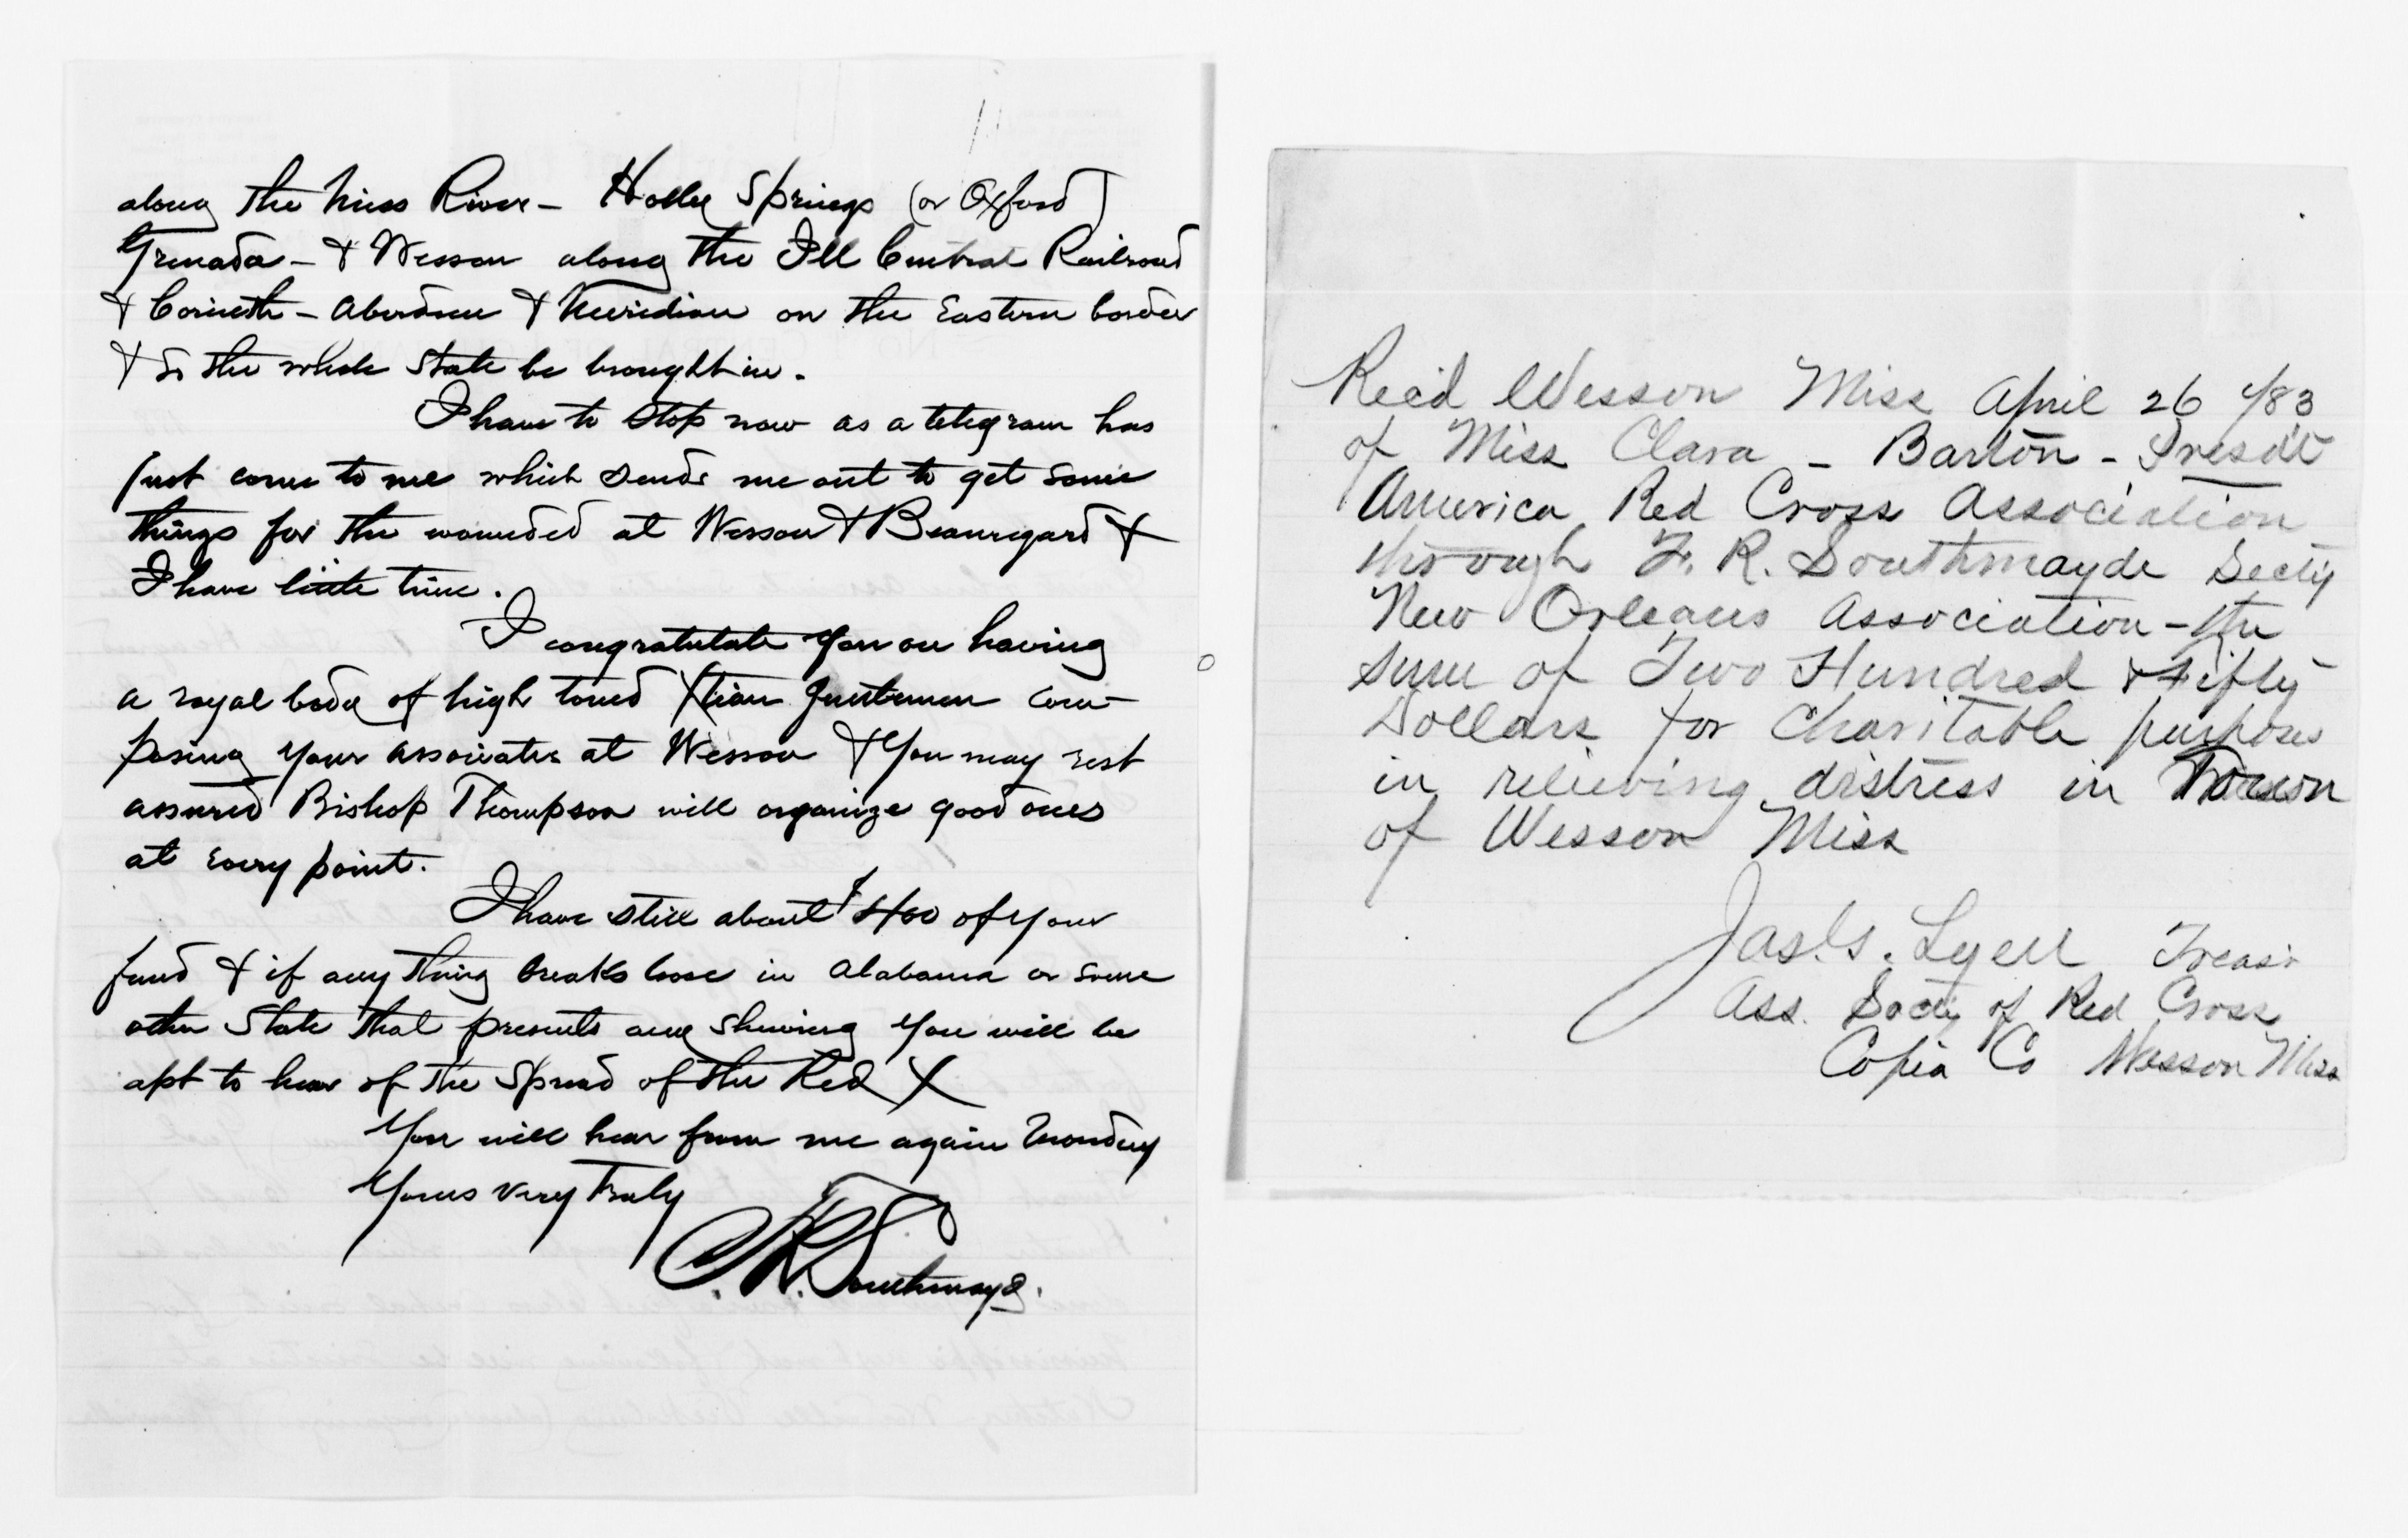 along the Miss River - Holly Springs (or Oxford)
Grenada - & Wesson along the Ill Central Railroad
& Corinth - Aberdeen & Meridian on the Eastern border
& so the whole State be brought in.
I have to stop now as a telegram has
just come to me which sends me out to get some
things for the wounded at Wesson & Beauregard &
I have little time.
I congratulate you on having
a royal body of high toned Xtian gentlemen com-
posing your associates at Wesson & you may rest
assured Bishop Thompson will organize good ones
at every point.
I have still about $400 of your
fund & if any thing breaks loose in Alabama or some
other State that presents any showing you will be
apt to hear of the spread of the Red X
You will hear from me again Monday
Yours very truly
F.R. Southmayd.
Rec'd Wesson Miss April 26 /83
of Miss Clara - Barton - Presdt
America Red Cross Association
through F. R. Southmayde Secty
New Orleans Association - the
sum of Two Hundred & Fifty
Dollars for Charitable purposes
in relieving distress in
of Wesson Miss
Jas. S. Lyell Treasr
Ass. Socty of Red Cross
Copia Co Wesson Miss